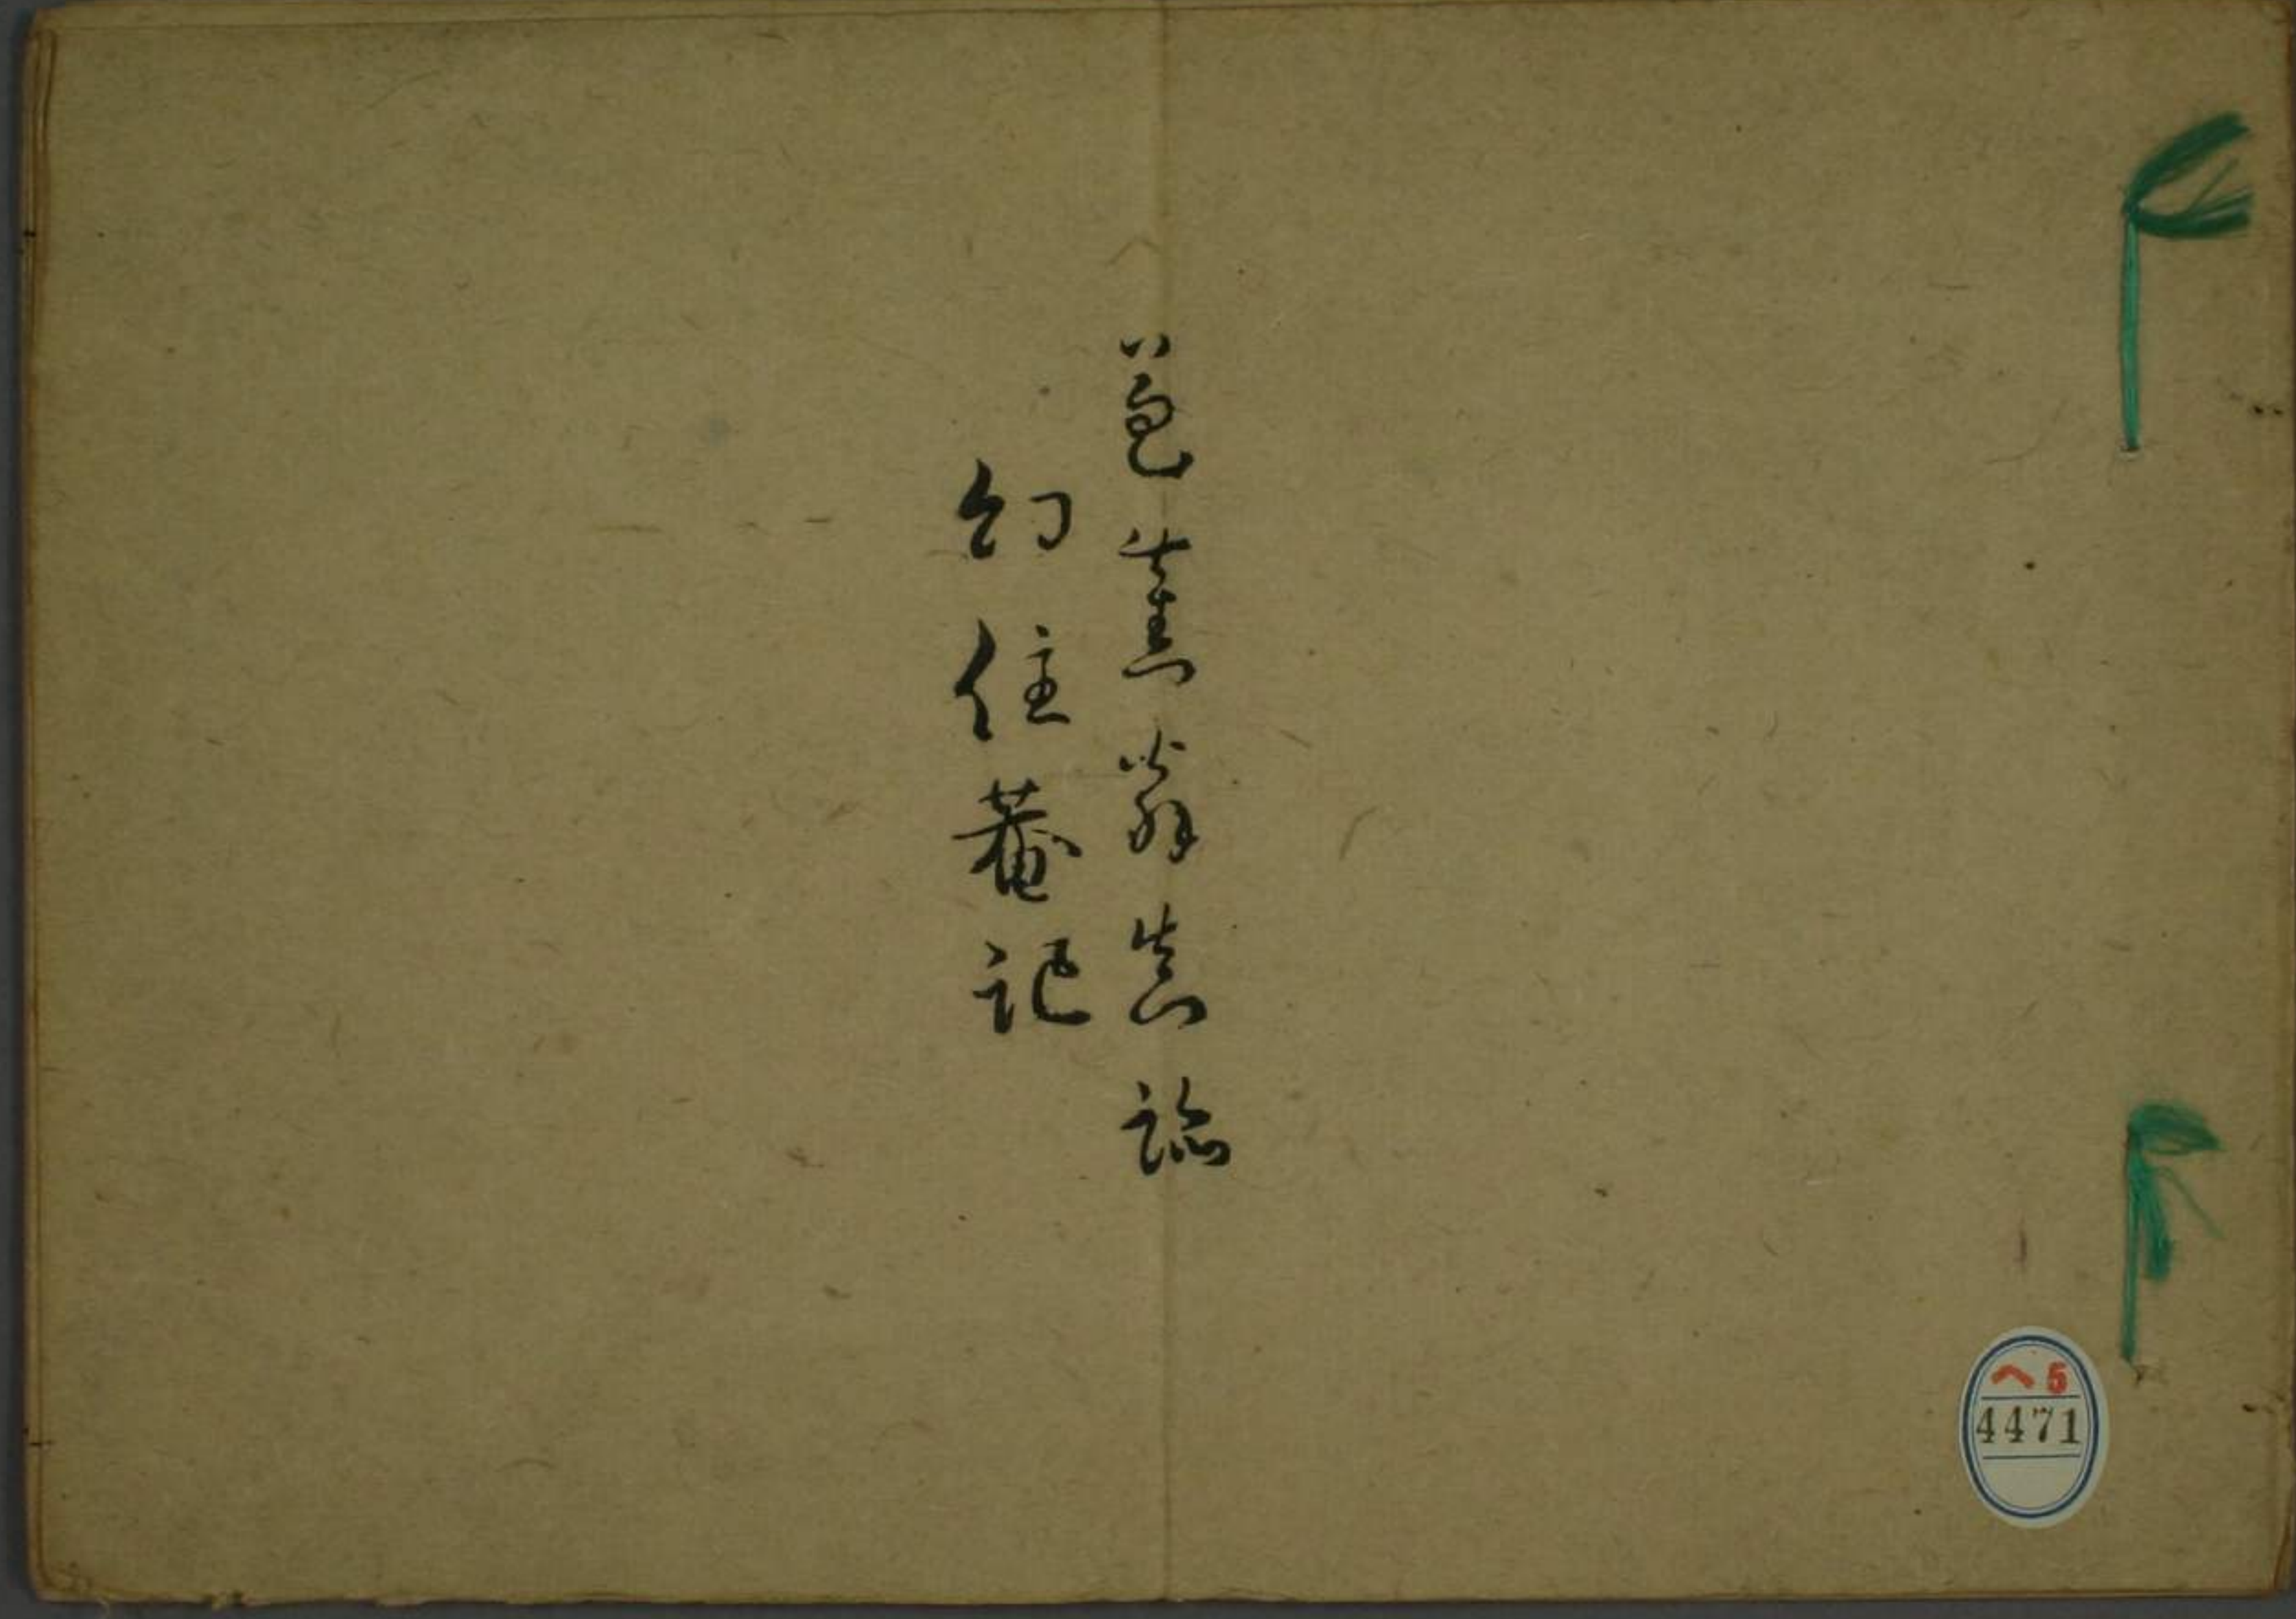 芭蕉翁真跡
幻住菴記
ヘ5
4471